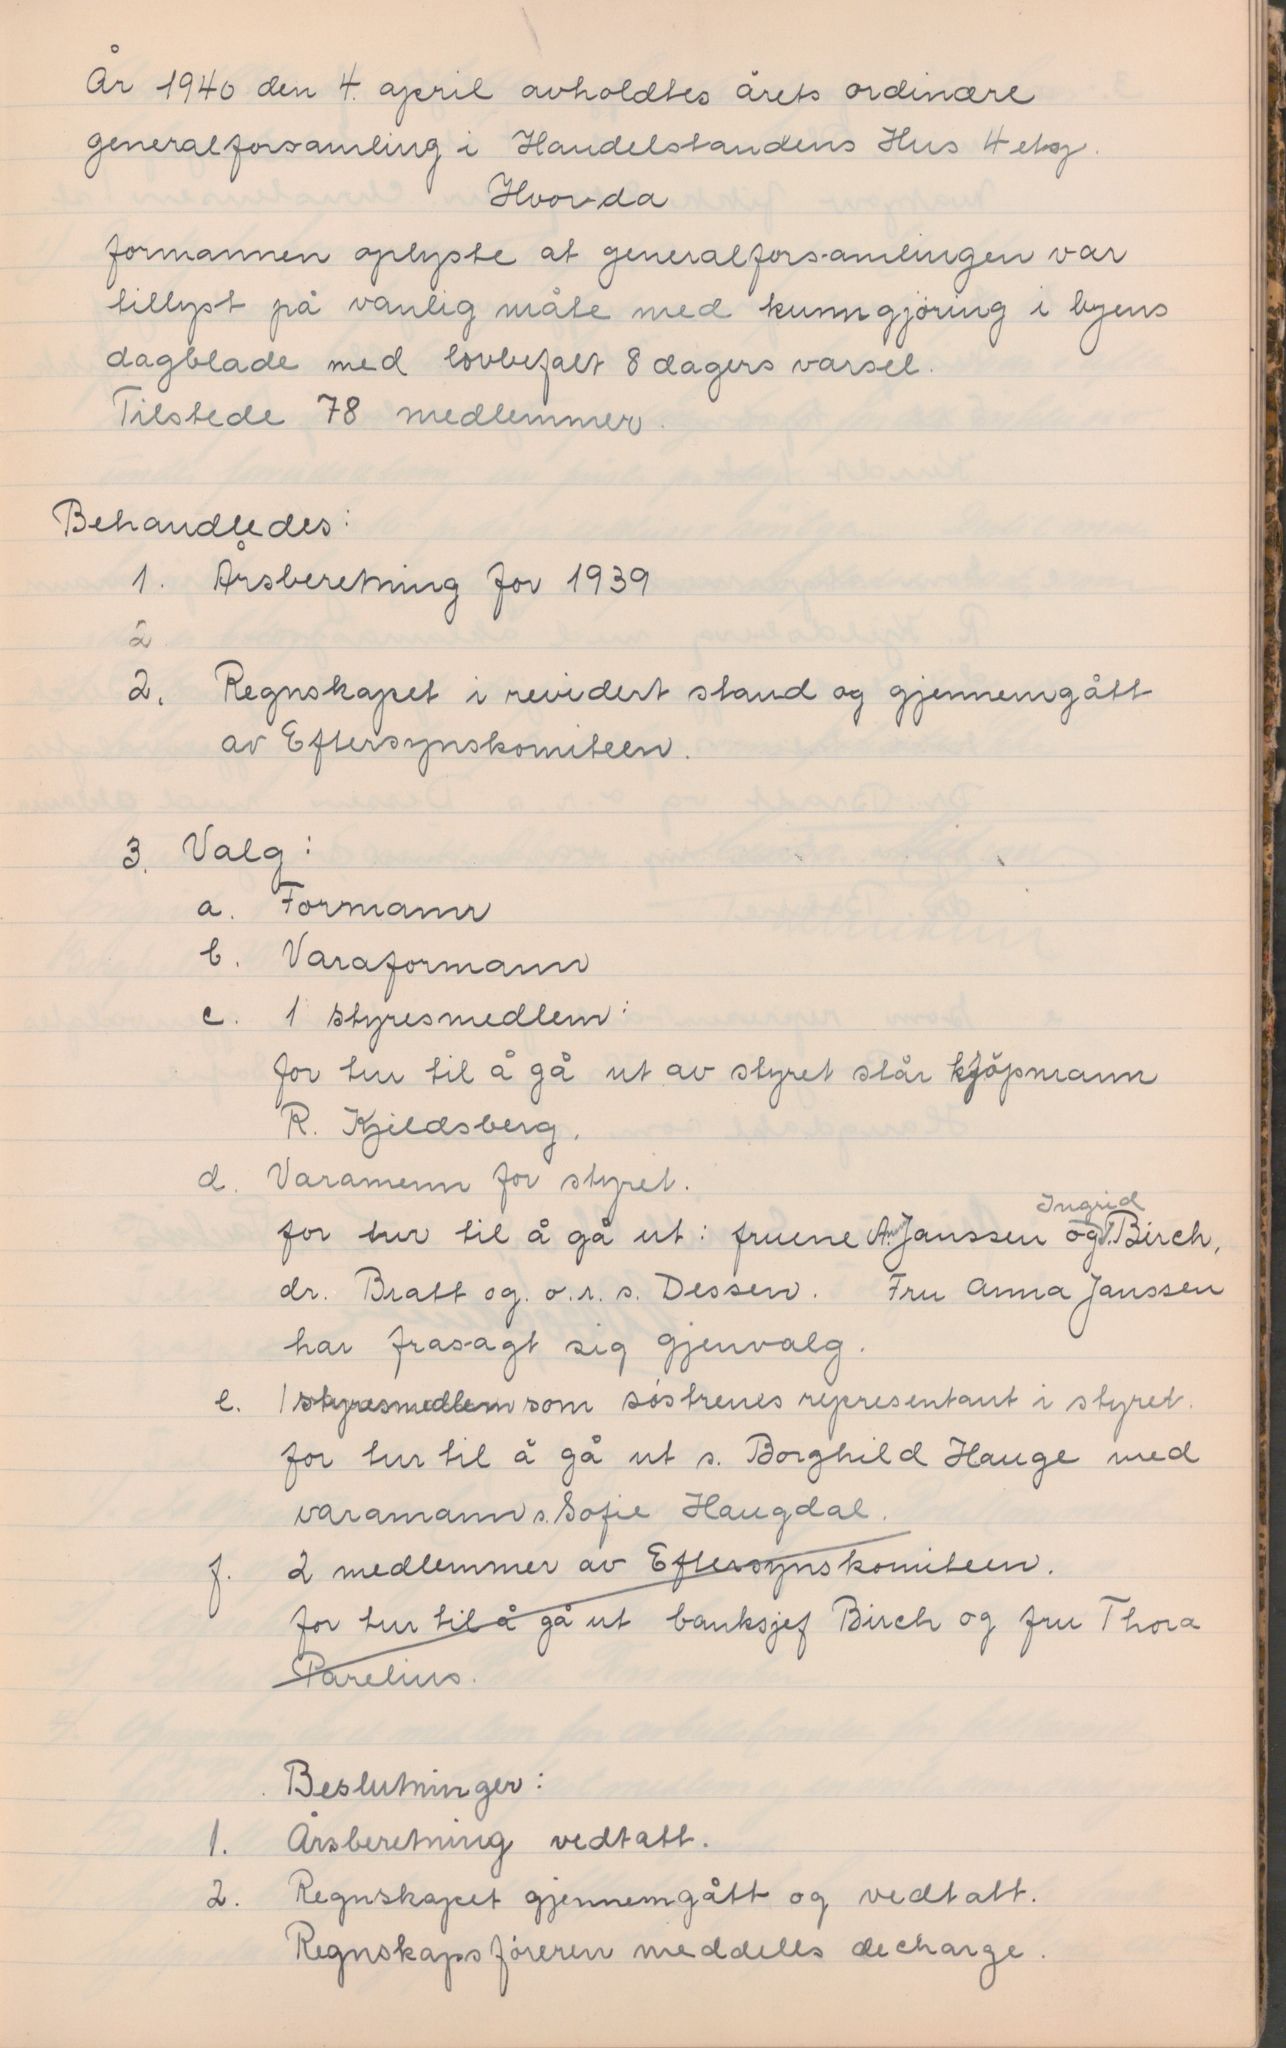 År 1940 den 4. april avholdtes årets ordinære
generalforsamling i Handelstandens Hus 4 etg.
Hvor da
formannen oplyste at generalforsamlingen var
tillyst på vanlig måte med kunngjøring i byens
dagblade med lovbefalt 8 dagers varsel.
Tilstede 78 medlemmer.
Behandledes:
1. Årsberetning for 1939
2
2. Regnskapet i revidert stand og gjennemgått
av Eftersynskomiteen.
3. Valg:
a. Formann
b. Varaformann
c. 1 styresmedlem:
for tur til å gå ut av styret står kjöpmann
R. Kjeldsberg.
d. Varamenn for styret.
Ingrid
for tur til å gå ut: fruene Janssen og Birch,
dr. Bratt og o.r.s. Dessen. Fru Anna Janssen
har frasagt sig gjenvalg.
e. 1 styresmedlem som söstrenes representant i styret.
for tur til å gå ut s. Borghild Hauge med
varamann s. Sofie Haugdal.
f. 2 medlemmer av Eftersynskomiteen.
for tur til å gå ut banksjef Birch og fru Thora
Parelius.
Beslutninger:
1. Årsberetning vedtatt.
2. Regnskapet gjennemgått og vedtatt.
Regnskapsføreren meddeles decharge.